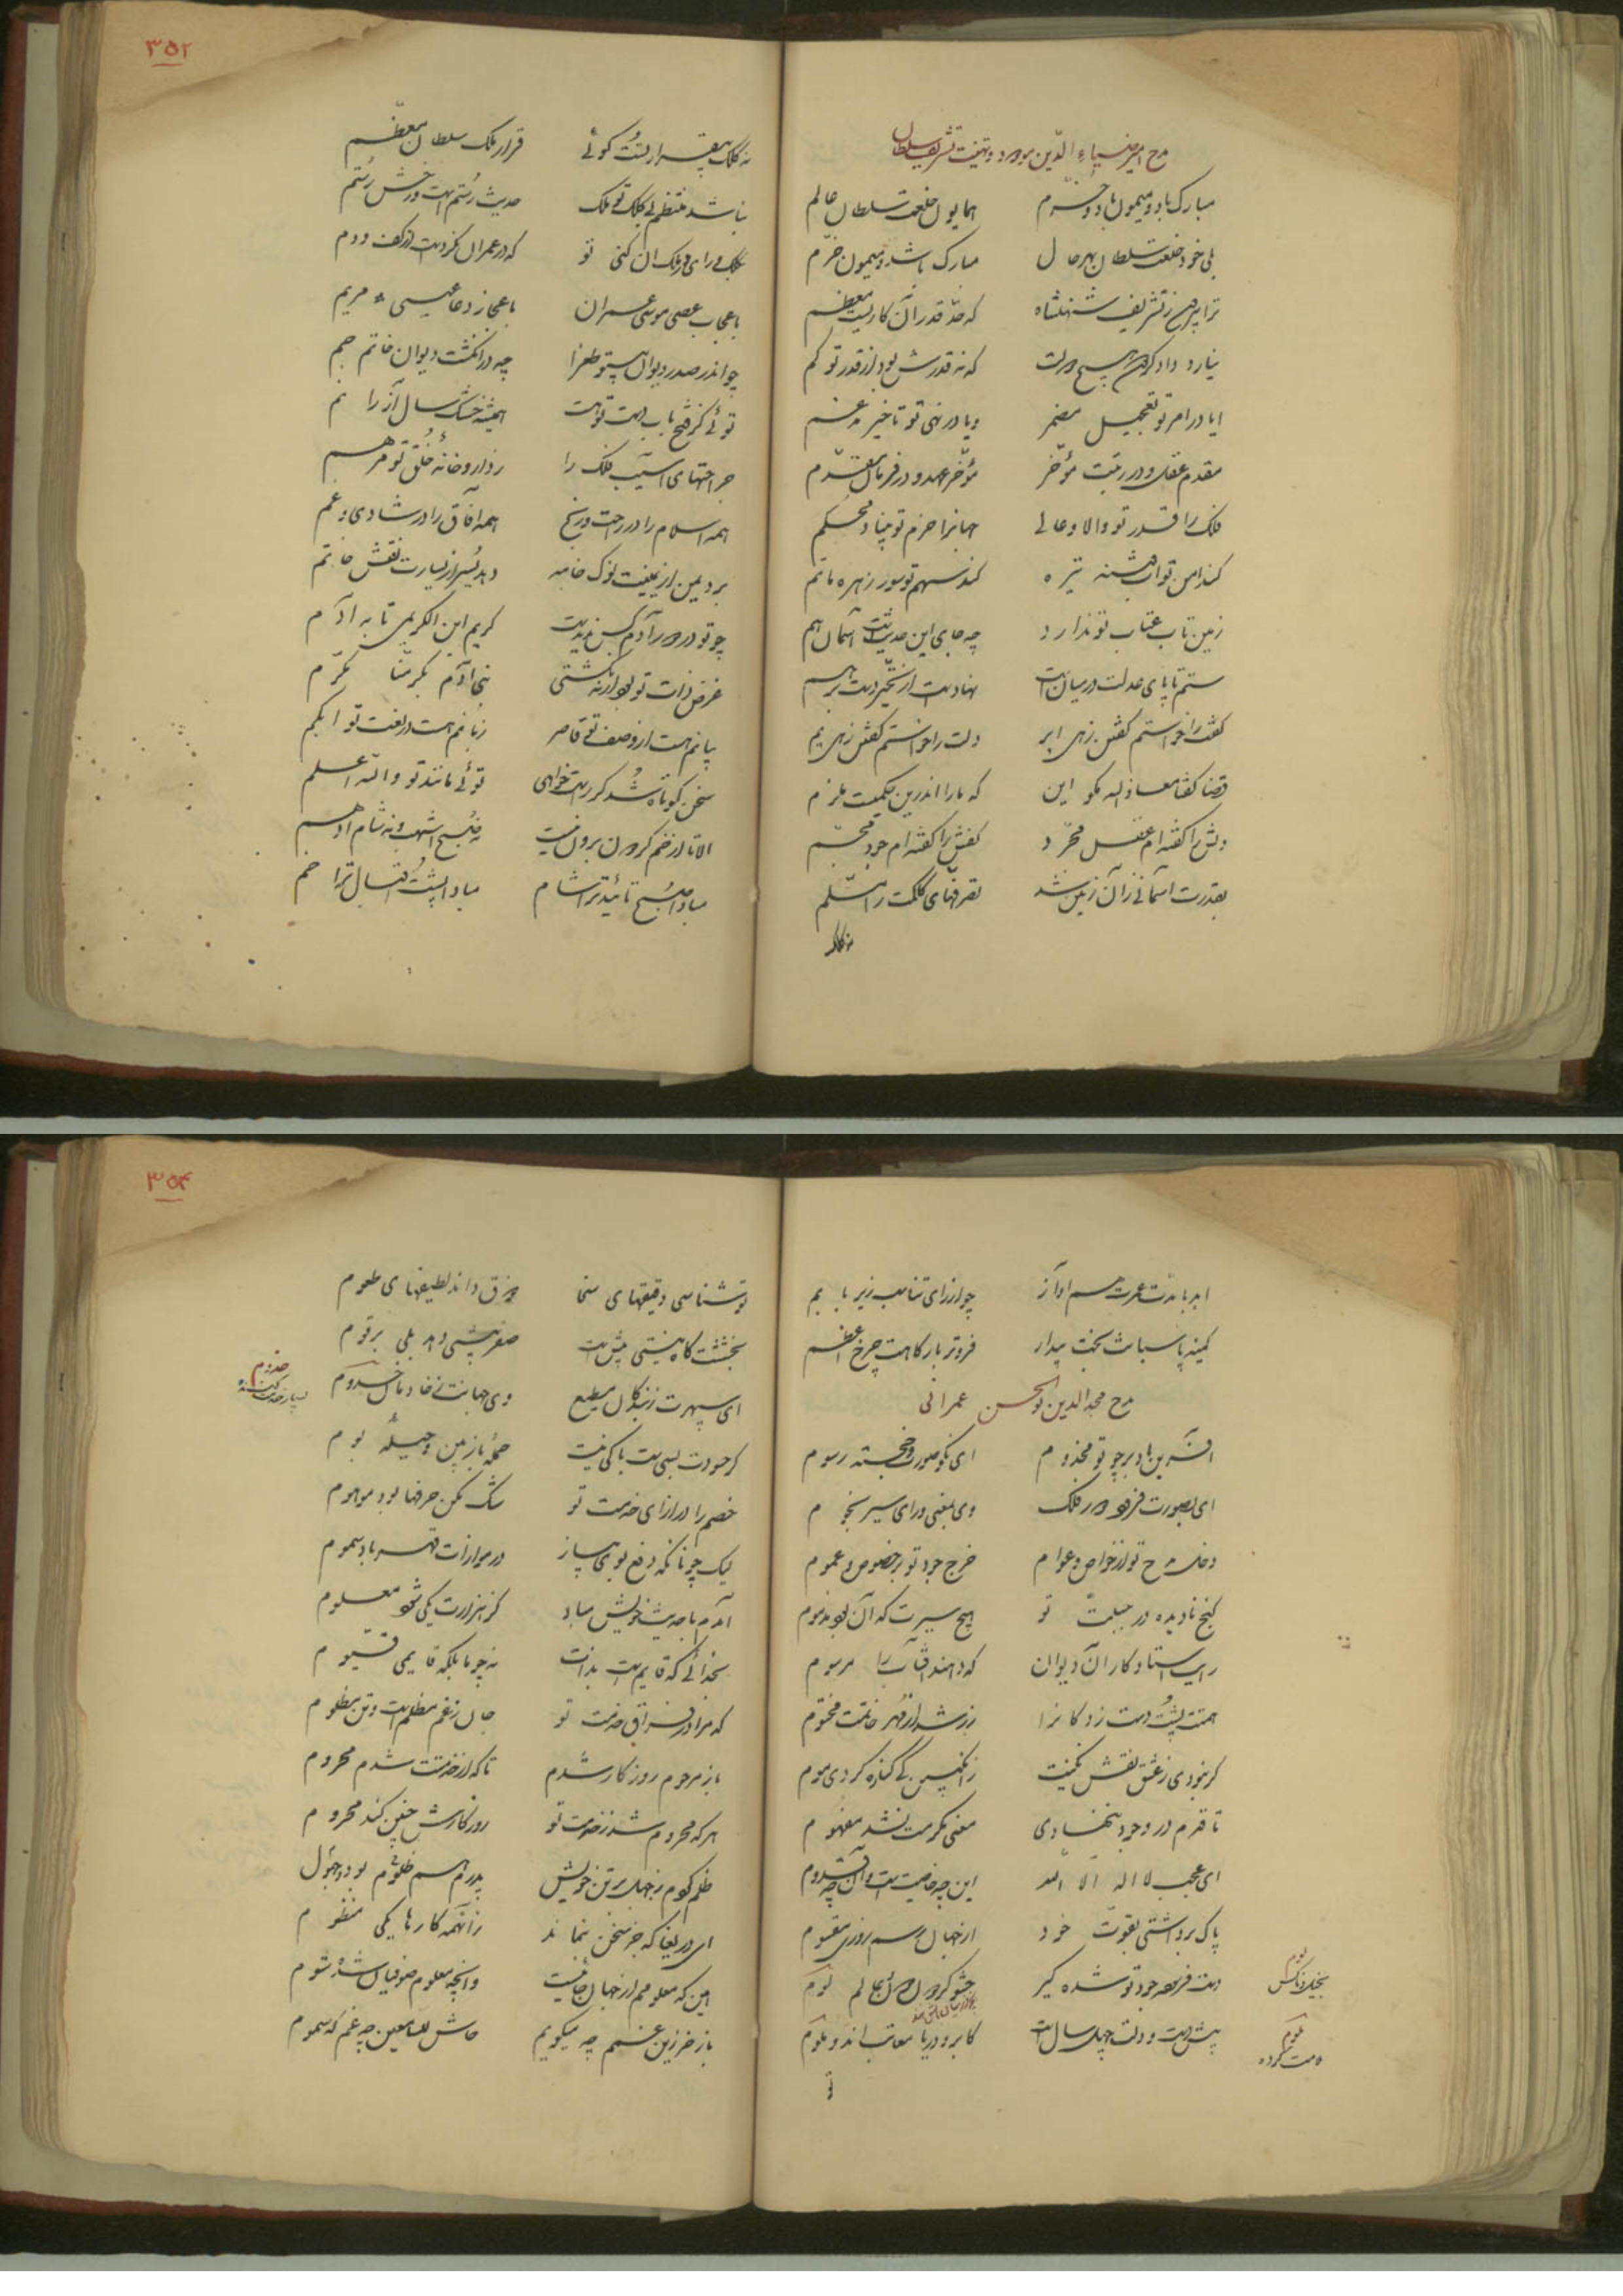 مدح امیر ضیاء الدین مودود و تهنیت تشریف سلطان
مبارک باد و میمون باد و خرم همایون خلعت سلطان عالم
بلی خود خلعت سلطان بهر حال مبارک باشد و میمون و خرم
ترا بر هر ز تشریف شهنشاه که حد قدر آن کاریست معظم
نیارد داد گردون هیچ دولت که نه قدرش بود از قدر تو کم
ایا در امر تو تعجیل مضمر و یا در نهی تو تاخیر مدغم
مقدم عقل و در رتبت مؤخر مؤخر عهد و در فرمان مقدم
فلک را قدر تو والا و عالی جهانرا حزم تو بنیاد محکم
کند امن تو آب فتنه تیره کند سهم تو سور زهره ماتم
زمین تاب عتاب تو ندارد چه جای این حدیثست آسمان هم
ستم تا پای عدلت در میانست نهادست از تحیر دست بر هم
کفت را خواستم گفتن زهی ابر دلت را خواستم گفتن زهی یم
قضا گفتا معاذ الله مگو این که ما را اندرین حکمیست ملزم
دلش را گفته‌ام عقل مجرد کفش را گفته‌ام جود مجسم
بقدرت آسمانی زان زمین شد تصرفهای کلکت را مسلم
نه کلک
۳۵۲
نه کلک بیقرار تست گوئی قرار ملک سلطان معظم
نباشد منتظم بی کلک تو ملک حدیث رستم است و رخش رستم
بکلک و رای در ملک آن کنی تو که در عمران نکردست از کف و دم
باعجاب عصی موسی عمران باعجاز دعا عیسی مریم
چو اندر صدر دیوان بی تو طغرا چه در انگشت دیوان خاتم جم
توئی کز فتح باب دست تو هست همیشه خشک سال آز را نم
جراحتهای آسیب فلک را ز داروخانه خلق تو مرهم
همه اسلام را در راحت و رنج همه آفاق را در شادی و غم
برد یمن از یمینت نوک خامه دهد یسر از یسارت نقش خاتم
چو تو در دور آدم کس ندیدست کریم ابن الکریمی تا به آدم
غرض ذات تو بود ار نه نگشتی بنی آدم بکرمنا مکرم
بیانم هست از وصف تو قاصر زبانم هست در نعت تو ابکم
سخن کوتاه شد گر راست خواهی توئی مانند تو والله اعلم
الا تا از خم گردون برون نیست نه صبح اشهب و نه شام ادهم
مبادا صبح تائید ترا شام مبادا پشت اقبال ترا خم
ابد با مدت عمرت هم آواز چو از رای تناسب زیر با بم
کمینه پاسبانت بخت بیدار فروتر بارگاهت چرخ اعظم
مدح مجد الدین ابو الحسن عمرانی
آفرین باد بر چو تو مخدوم ای نکو صورت و خجسته رسوم
ای بصورت فرود دور فلک وی بمعنی ورای سیر نجوم
دخل مدح تو از خواص و عوام خرج جود تو بر خصوص و عموم
گنج نادیده در جبلت تو هیچ سیرت که آن بود مذموم
رای استاد کاردان دیوان که دهند آفتاب را مرسوم
همتت پشت دست زد کان را زر شد از مهر خاتمت مختوم
گر نبودی ز عشق نقش نگینت ز انگبین کی کناره کردی موم
تا قدم در وجود ننهادی معنی مکرمت نشد مفهوم
ای عجب لا اله الا الله این چه خاصیت است و آن چه قدوم
پاک برداشتی بقوت خود از جهان رسم روزی مقسوم
دست فرسوده جود تو شده گیر حشو گردون دون و عالم لوم
پیش دست و دلت چهل سال است کابر و دریا معاتب‌اند و ملوم
تو
لوم
بخیل و ناکس
ملوم
ملامت کرده
۳۵۳
تو شناسی دقیقهای سخا ذوق داند لطیفهای طعوم
بخششت گاه نیستی پیش است صفر بیشی دهد بلی برقوم
ای سپهرت ز بندگان مطیع وی جهانت ز خادمان خدوم
خدوم
بسیار خدمت کننده
گر حسودت بسی است باکی نیست حمله باز بین و حیله بوم
خصم را در ازای خدمت تو شک مکن حرفها بود موهوم
لیک چونانکه دفع بوی پیاز در موازات قهر باد سموم
آمدم با حدیث خویش مباد کز هزارت یکی شود معلوم
بخدائی که قایم است بذات نه چو ما بلکه قایمی قیوم
که مرا در فراق خدمت تو جان ز غم مظلم است و تن مظلوم
باز مرحوم روزگار شدم تا که از خدمتت شدم محروم
هر که محروم شد ز خدمت تو روزگارش چنین کند مرحوم
ظلم کردم ز جهل بر تن خویش پدرم هم ظلوم بود و جهول
ای دریغا که جز سخن بنماند زان همه کارها یکی منظوم
این که معلومم از جهان جانیست وانچه معلوم صوفیان شده شوم
باز خر زین غمم چه میگویم حاش للسامعین چه غم که سموم